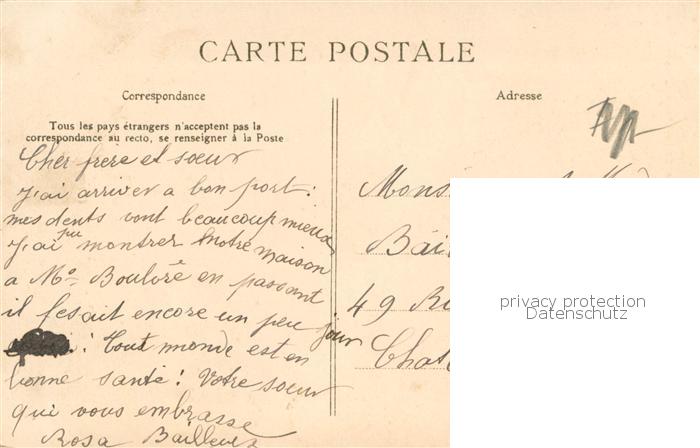 CARTE POSTALE
Correspondance
Adresse
Tous les pays étrangers n'acceptent pas la
correspondance au recto, se renseigner à la Poste
Cher frère et sœur
J'ai arriver a bon port:
mes dents vont beaucoup mieux
J'ai pu montrer notre maison
a Mo Bouloré en passant
il fesait encore un peu jour
! Tout monde est en
bonne santé! Votre sœur
qui vous embrasse
Rosa
Mons
Bai
49 Ru
Chat
privacy protection
Datenschutz